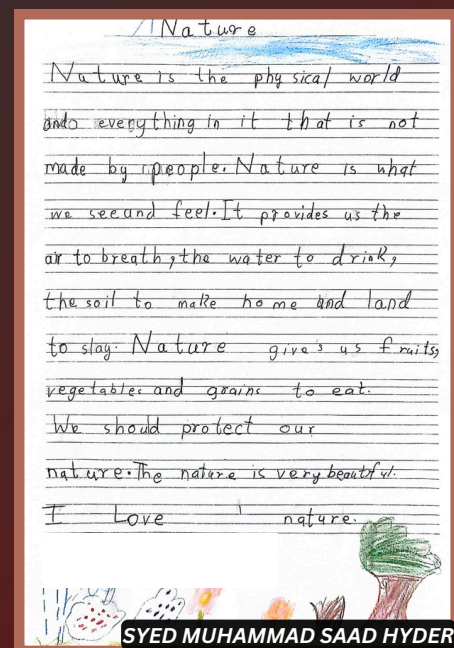 Nature
Nature is the physical world
and everything in it that is not
made by people. Nature is what
we see and feel. It provides us the
air to breath, the water to drink,
the soil to make home and land
to stay. Nature give's us fruits,
vegetables and grains to eat.
We should protect our
nature. The nature is very beautiful.
I Love nature.
SYED MUHAMMAD SAAD HYDER